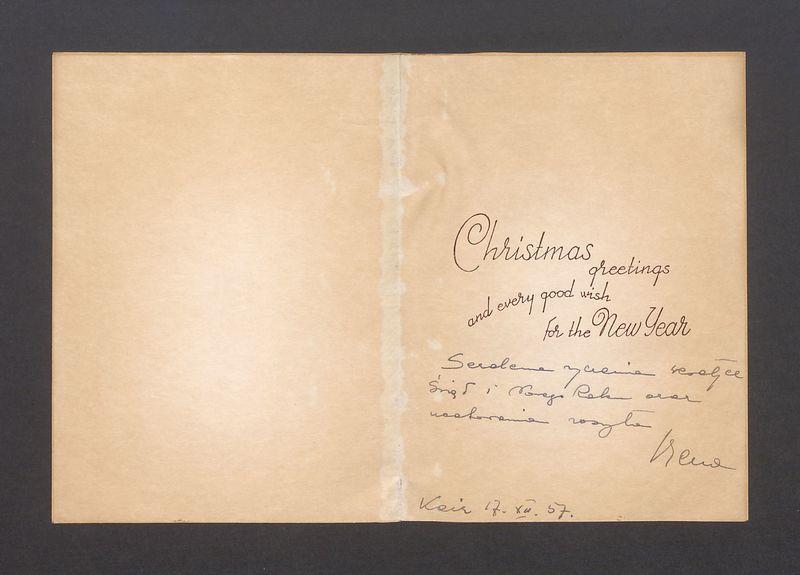 Christmas
greetings
and every good wish
for the New Year
Serdeczne życzenia
Świąt i Nowego Roku oraz
ucałowania
Irena
Kair 17. XII. 57.